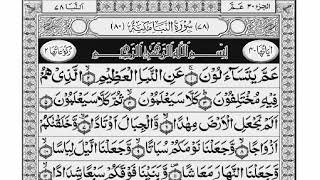 الجزء ٣٠ عمّ النبا ٧٨
(٧٨) سُوْرَةُ النَّبَاِ مَكِّيَّةٌ (٨٠)
اٰيَاتُهَا ٤٠ بِسْمِ اللّٰهِ الرَّحْمٰنِ الرَّحِيْمِ رُكُوْعَاتُهَا ٢
عَمَّ يَتَسَآءَلُوْنَ ۚ عَنِ النَّبَاِ الْعَظِيْمِ ۙ الَّذِيْ هُمْ
فِيْهِ مُخْتَلِفُوْنَ ؕ كَلَّا سَيَعْلَمُوْنَ ۙ ثُمَّ كَلَّا سَيَعْلَمُوْنَ
اَلَمْ نَجْعَلِ الْاَرْضَ مِهٰدًا ۙ وَّالْجِبَالَ اَوْتَادًا ۙ وَّخَلَقْنٰكُمْ
اَزْوَاجًا ۙ وَّجَعَلْنَا نَوْمَكُمْ سُبَاتًا ۙ وَّجَعَلْنَا الَّيْلَ لِبَاسًا
وَّجَعَلْنَا النَّهَارَ مَعَاشًا ۪ وَّبَنَيْنَا فَوْقَكُمْ سَبْعًا شِدَادًا